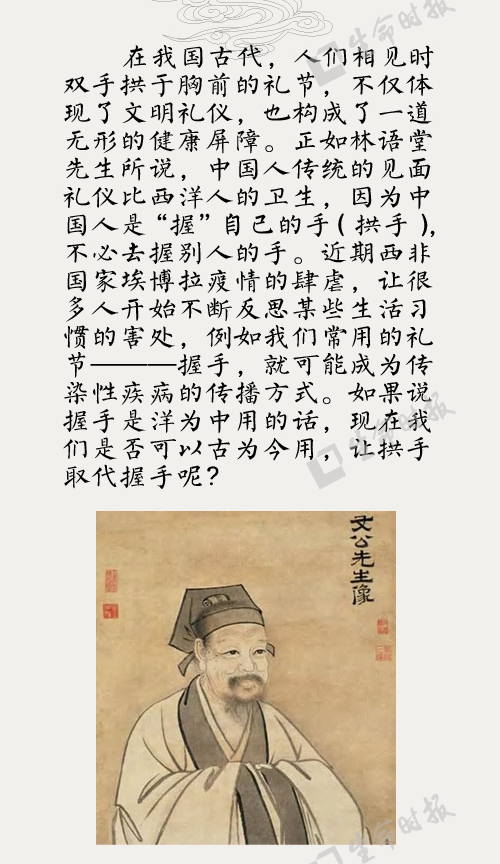 生命时报
在我国古代，人们相见时
双手拱于胸前的礼节，不仅体
现了文明礼仪，也构成了一道
无形的健康屏障。正如林语堂
先生所说，中国人传统的见面
礼仪比西洋人的卫生，因为中
国人是“握”自己的手(拱手)，
不必去握别人的手。近期西非
国家埃博拉疫情的肆虐，让很
多人开始不断反思某些生活习
惯的害处，例如我们常用的礼
节———握手，就可能成为传
染性疾病的传播方式。如果说
握手是洋为中用的话，现在我
们是否可以古为今用，让拱手
取代握手呢？
生命时报
文公先生像
生命时报